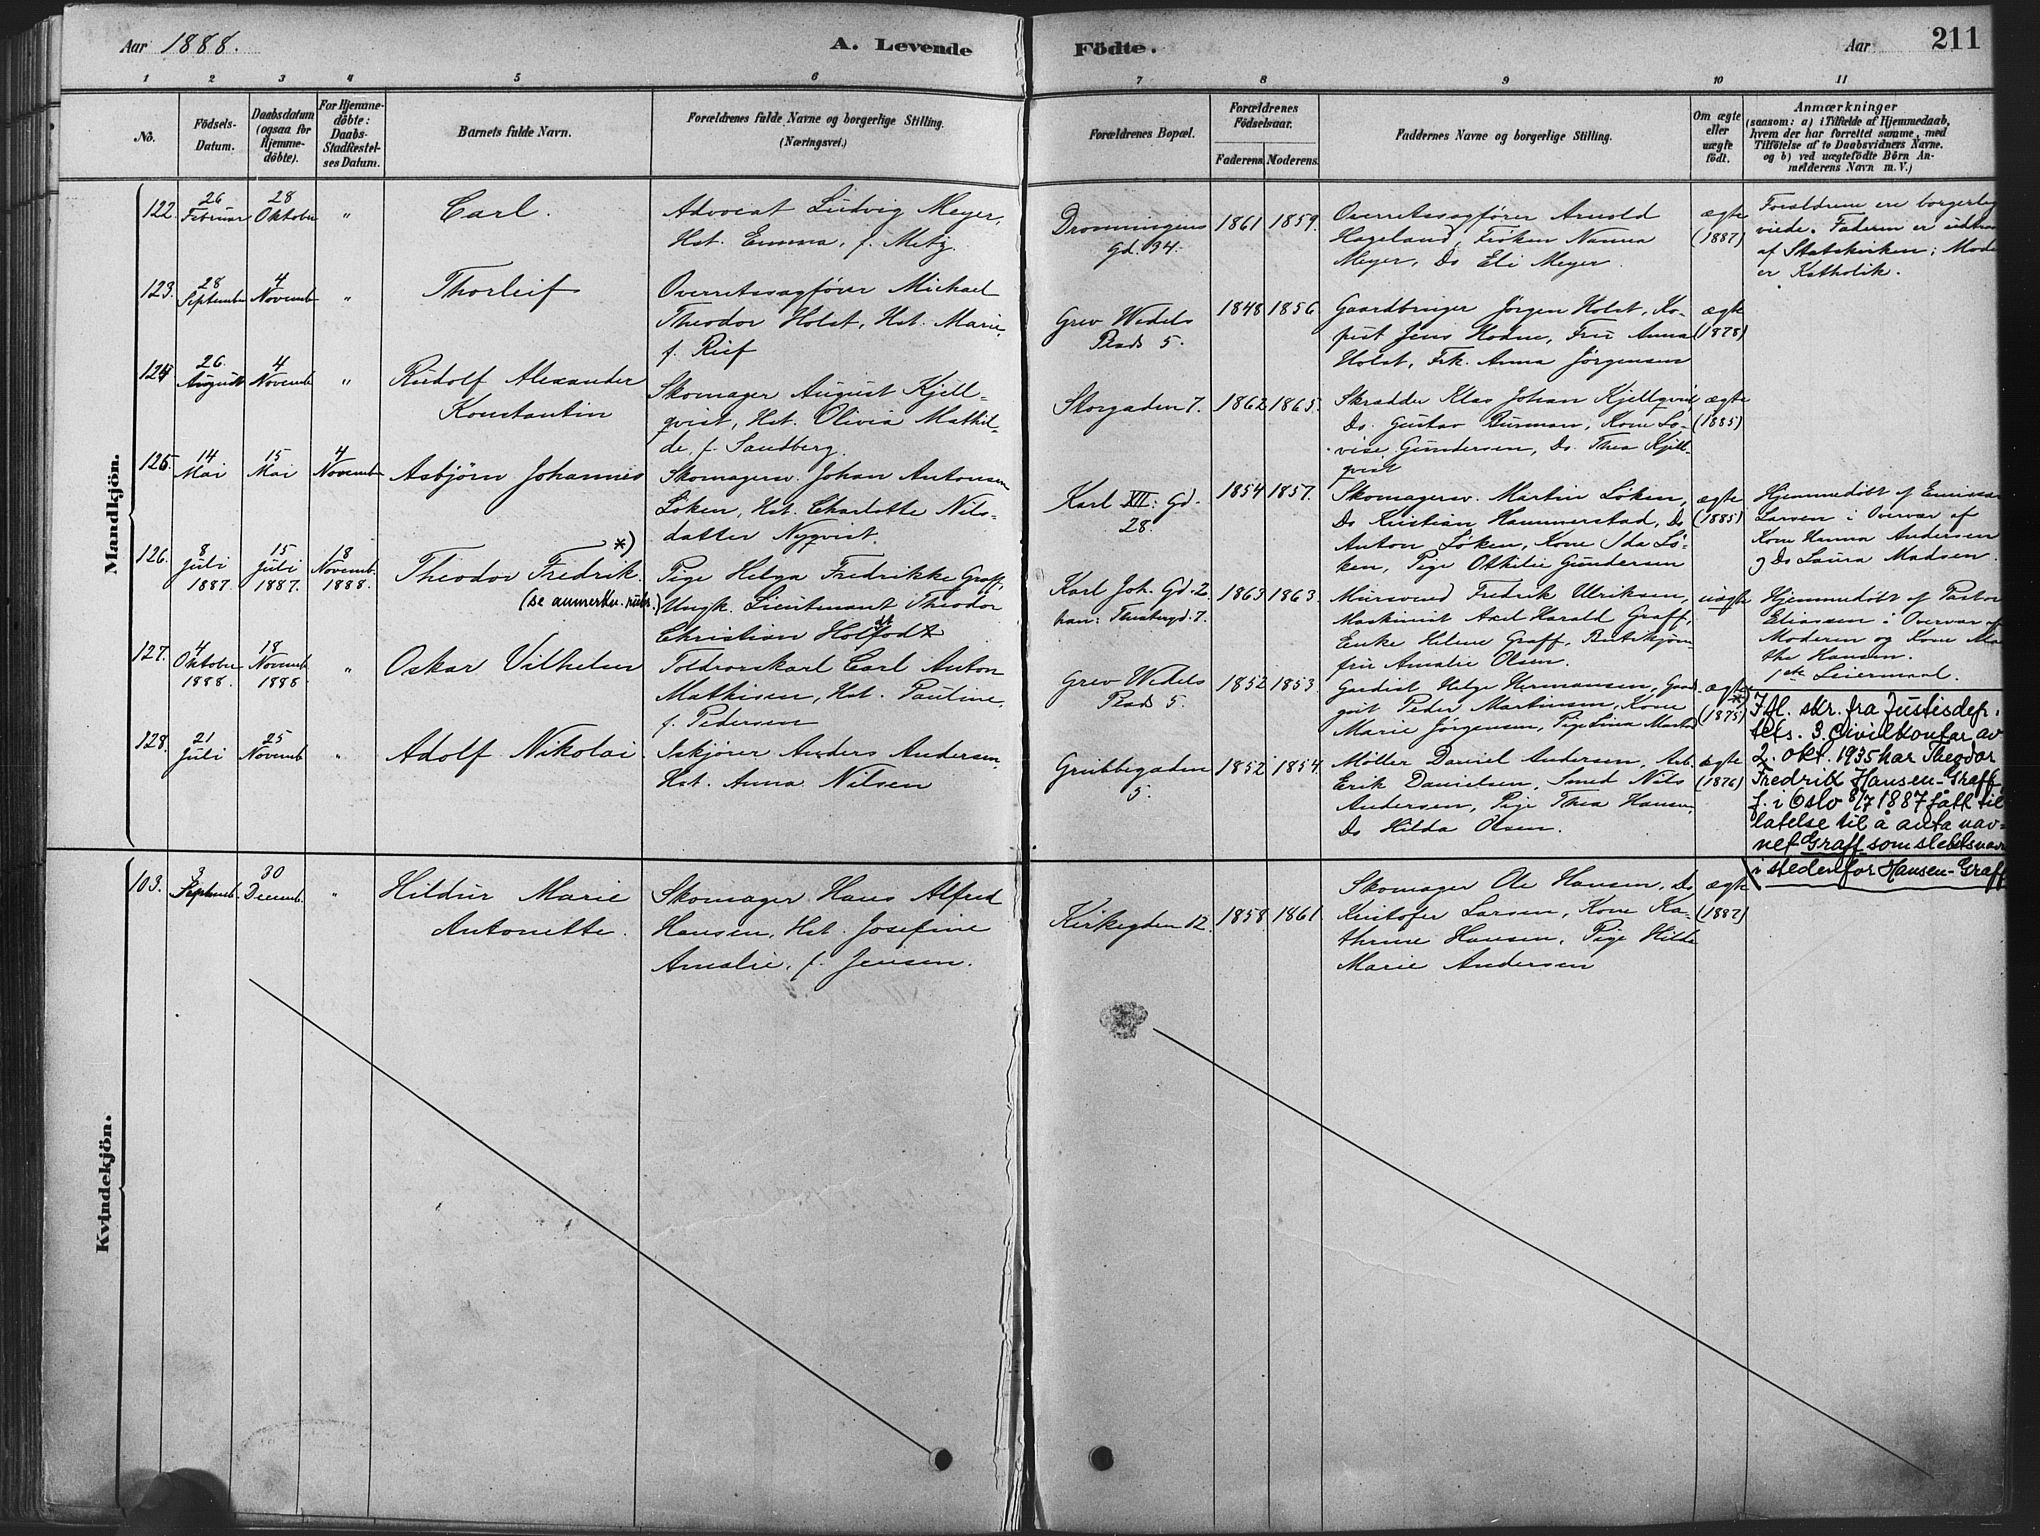 Aar 1888.
A. Levende Födte.
Aar
211
1 2 3 4 5 6 7 8 9 10 11
No.
Födsels-
Datum.
Daabsdatum
(ogsaa for
Hjemme-
döbte).
For Hjemme-
döbte:
Daabs-
Stadfæstel-
ses Datum.
Barnets fulde Navn.
Forældrenes fulde Navne og borgerlige Stilling.
(Næringsvei.)
Forældrenes Bopæl.
Forældrenes
Födselsaar.
Faderens. Moderens.
Faddernes Navne og borgerlige Stilling.
Om ægte
eller
uægte
födt.
Anmærkninger
(saasom: a) i Tilfælde af Hjemmedaab,
hvem der har forrettet samme, med
Tilföielse af to Daabsvidners Navne.
og b) ved uægtefödte Börn An-
melderens Navn m. V.)
Mandkjön.
122.
26
Februar
28
Oktober
"
Carl.
Advocat Ludvig Meyer,
Hst. Emma, f. Metz.
Dronningens
Gd. 34.
1861
1859.
Overretssagfører Arnold
Hazeland, Frøken Nanna
Meyer, Do Eli Meyer.
ægte
(1887)
Forældrene ere borgerlig
viede. Faderen er
af Statskirken;
er Katholik.
123.
28
September
4
Novemb
"
Thorleif
Overretssagfører Michael
Theodor Holst, Hst. Marie,
f. Rief
Grev Wedels
Plads 5.
1848
1856.
Gaardbruger Jörgen Holst, Ko-
pist Jens Hodne, Fru Anna
Holst, Frk. Anna Jörgensen
ægte
(1878)
124
26
August
4
Novemb
"
Rudolf Alexander
Konstantin
Skomager August Kjell-
qvist, Hst. Olivia Mathil-
de, f. Sandberg.
Storgaden 7.
1862
1865.
Skrædder Klas Johan Kjellqvist,
Do. Gustav Burman, Kone Lo-
vise Gundersen, Do. Thea Kjell-
qvist
ægte
(1885)
125.
14
Mai
15
Mai
4
Novemb
Asbjørn Johannes
Skomagersv. Johan Antonsen
Löken, Hst. Charlotte Nils-
datter Nyqvist.
Karl XII: Gd.
28.
1854
1857.
Skomagersv. Martin Löken,
Do Kristian Hammerstad, Do
Anton Löken, Kone Ida Lö-
ken, Pige Othilie Gundersen
ægte
(1885)
Hjemmedøbt af
Larsen i Overvær af
Kone Hanna Andersen
og Do Laura Madsen.
126.
8
Juli
1887
15
Juli
1887.
18
Novemb.
1888.
Theodor Fredrik. *)
(se anmerkn. rubr.)
Pige Helga Fredrikke Graff,
Ungk. Lieutenant Theodor
Christian Holfodt
Karl Joh. Gd. 2
han: Tgd. 7.
1863
1863.
Mursvend Fredrik Ulriksen,
Maskinist Axel Harald Graff,
Enke Helene Graff, Butikjom-
fru Amalie Olsen.
uægte
Hjemmedøbt af Pastor
Eliassen i Overvær af
Moderen og Kone
the Hansen.
1ste Leiermaal.
127.
4
Oktober
1888.
18
Novemb
1888
"
Oskar Vilhelm
Toldrorskarl Carl Anton
Mathisen, Hst. Pauline,
f. Pedersen
Grev Wedels
Plads 5.
1852
1853.
Gardist Helge Hermansen,
Peder Martinsen, Kone
Marie Jörgensen, Pige Lina
ægte
(1875)
*) Ifl. skr. fra Justisdep.
tets. 3. Civilkontor av
2. okt. 1935 har Theodor
Fredrik Hansen-Graff,
f. i Oslo 8/7 1887 fått til-
latelse til å anta nav-
net Graff som slektsnavn
i stedenfor Hansen-Graff
128.
21
Juli
25
Novemb
"
Adolf Nikolai
Iskjører Anders Andersen,
Hst. Anna Nilsen
Grubbegaden
5.
1852
1854.
Møller Daniel Andersen, Arb.
Erik Danielsen, Smed Nils
Andersen, Pige Thea Hansen,
Do Hilda Olsen.
ægte
(1876)
Kvindekjön.
103.
3
Septemb.
30
Decemb.
"
Hildur Marie
Antonette.
Skomager Hans Alfred
Hansen, Hst. Josefine
Amalie, f. Jensen.
Kirkegden 12.
1858
1861
Skomager Ole Hansen, Do
Kristofer Larsen, Kone Ka-
thrine Hansen, Pige Hilda
Marie Andersen
ægte
(1882)